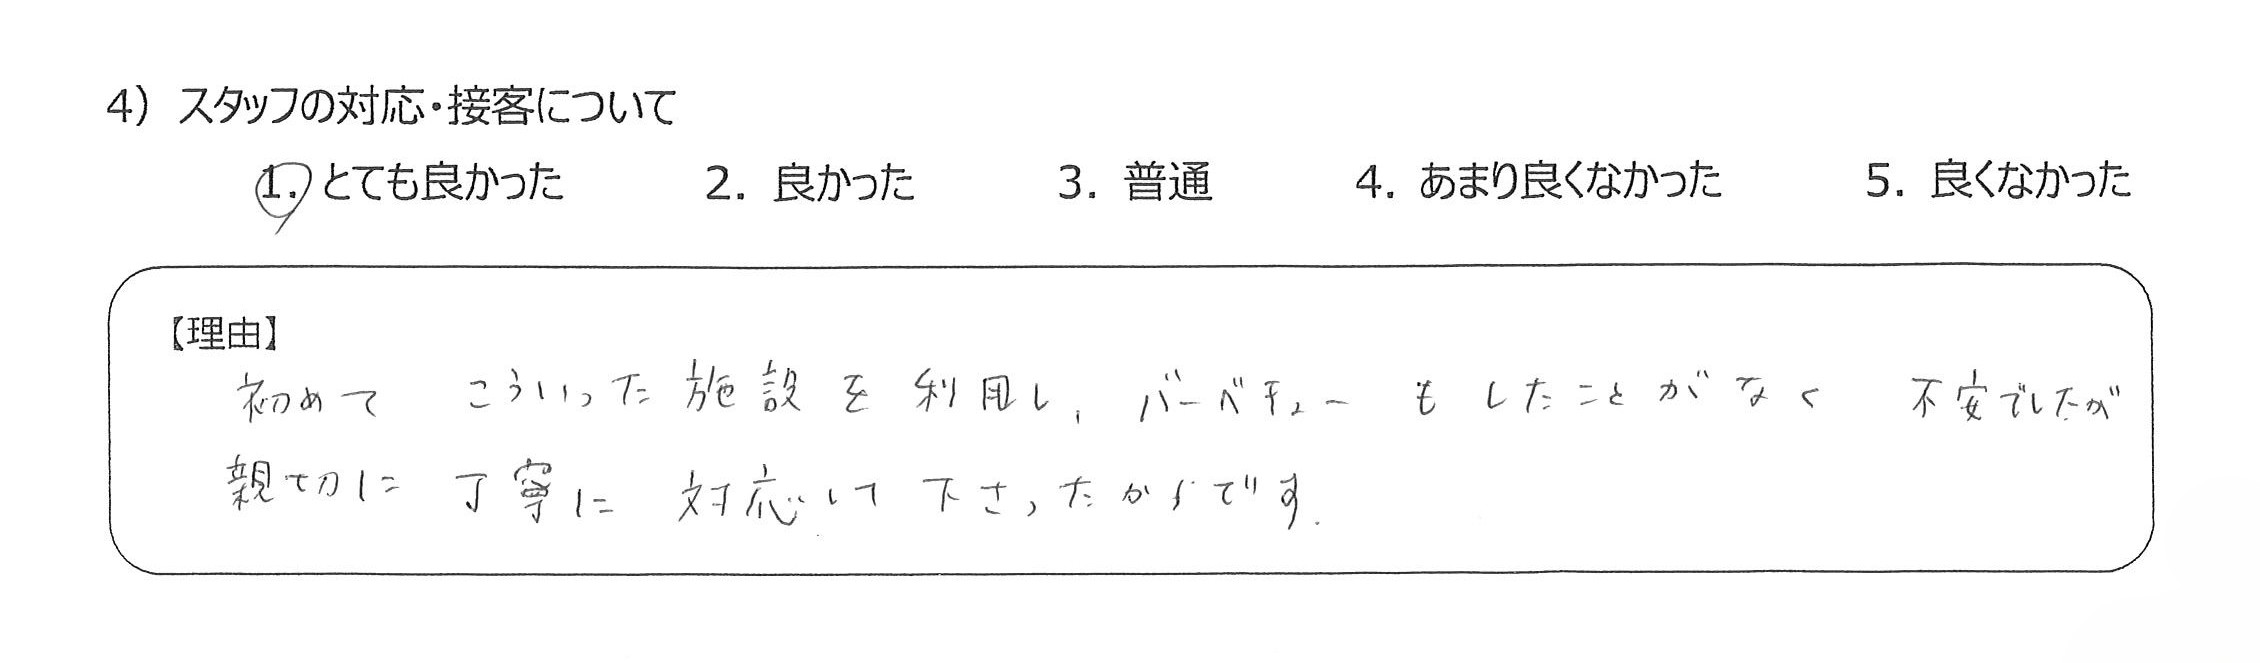 4) スタッフの対応・接客について
1. とても良かった 2. 良かった 3. 普通 4. あまり良くなかった 5. 良くなかった
【理由】
初めて こういった施設を利用し、バーベキューもしたことがなく 不安でしたが
親切に 丁寧に 対応して下さったからです.